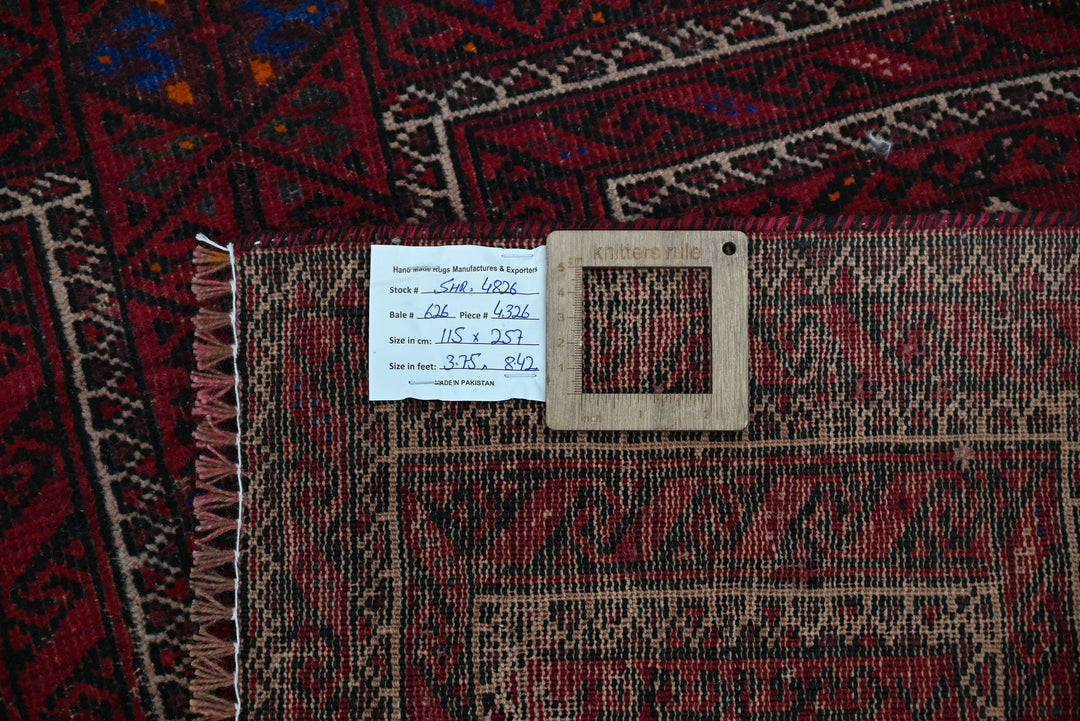 Hand Made Rugs Manufactures & Exporters
Stock # SHR. 4826
Bale # 626 Piece # 4326
Size in cm: 115 x 257
Size in feet: 3.75 x 8.42
MADE IN PAKISTAN
knitters rule
5 cm
4
3
2
1
inch 1 2